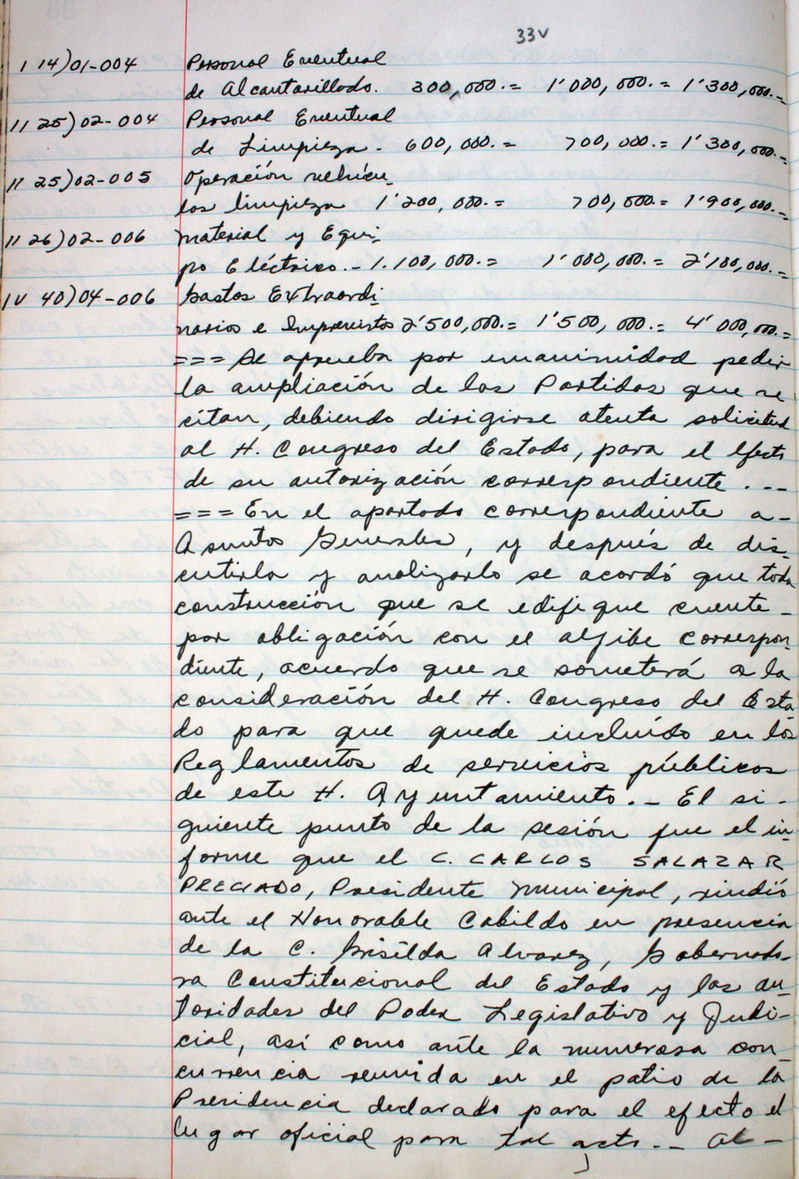 33v
I 14)01-004 Personal Eventual
de Alcantarillado. 300,000.= 1'000,000.= 1'300,000.=
II 25)02-004 Personal Eventual
de Limpieza. 600,000.= 700,000.= 1'300,000.=
II 25)02-005 Operación vehícu-
los limpieza 1'200,000.= 700,000.= 1'900,000.=
II 26)02-006 Material y Equi-
po Eléctrico.- 1.100,000.= 1'000,000.= 2'100,000.=
IV 40)04-006 Gastos Extraordi
narios e Imprevistos 2'500,000.= 1'500,000.= 4'000,000.=
=== Se aprueba por unanimidad pedir
la ampliación de las Partidas que se
citan, debiendo dirigirse atenta solicitud
al H. Congreso del Estado, para el efecto
de su autorización correspondiente . --
=== En el apartado correspondiente a-
Asuntos Generales, y después de dis-
cutirlo y analizarlo se acordó que toda
construcción que se edifique cuente-
por obligación con el aljibe correspon-
diente, acuerdo que se someterá a la
consideración del H. Congreso del Esta
do para que quede incluído en los
Reglamentos de servicios públicos
de este H. Ayuntamiento.- El si-
guiente punto de la sesión fue el in-
forme que el C. CARLOS SALAZAR
PRECIADO, Presidente Municipal, rindió
ante el Honorable Cabildo en presencia
de la C. Griselda Alvarez, Gobernado-
ra Constitucional del Estado y las au-
toridades del Poder Legislativo y Judi-
cial, así como ante la numerosa con-
currencia reunida en el patio de la
Presidencia declarado para el efecto el
lugar oficial para tal acto.- Al-